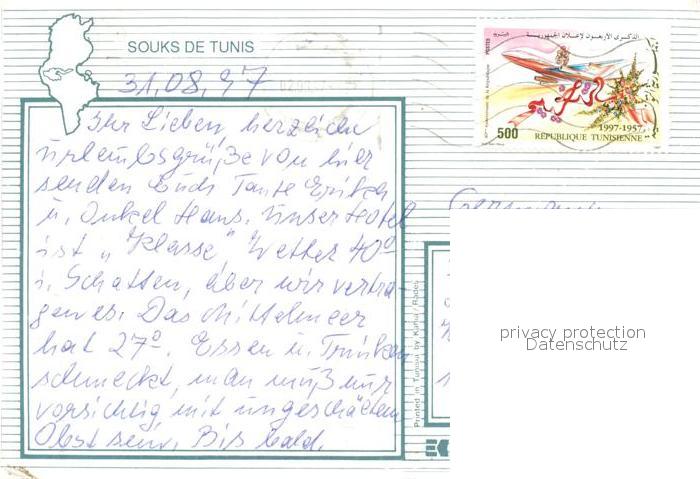 SOUKS DE TUNIS
31.08.97
Ihr Lieben, herzliche
Urlaubsgrüße von hier
senden Euch Tante Erika
u. Onkel Hans. Unser Hotel
ist "Klasse" Wetter 40°
i. Schatten, aber wir vertra-
gen es. Das Mittelmeer
hat 27°. Essen u. Trinken
schmeckt, man muß nur
vorsichtig mit ungeschältem
Obst sein. Bis bald.
الذكرى الأربعون لإعلان الجمهورية
البريد
POSTES
500
1997-1957
REPUBLIQUE TUNISIENNE
Germany
Printed in Tunisia by Kahia / Rades
privacy protection
Datenschutz